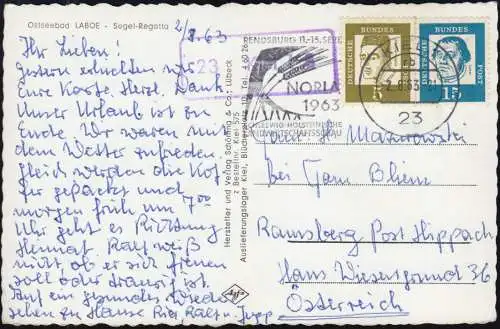 Ostseebad LABOE - Segel-Regatta
2/8.63
Ihr Lieben!
Gestern erhielten wir
Eure Karte. Herzl. Dank.
Unser Urlaub ist zu
Ende. Wir waren mit
dem Wetter zufrieden.
Gleich werden die Kof-
fer gepackt und
morgen früh um 7⁰⁰
Uhr geht es Richtung
Heimat. Ralf weiß
nicht ob er sich freuen
soll oder traurig ist.
Auf ein gesundes Wieder-
sehen zu Hause Ralf u. Jupp
Hersteller und Verlag Schöning & Co., Lübeck
Z Bestellnr. Kiel 575
Auslieferungslager Kiel, Tel. 4 60 26
Agfa
23
RENDSBURG 11.-15. SEPT.
NORLA
1963
SCHLESWIG-HOLSTEINISCHE
LANDWIRTSCHAFTSSCHAU
23
DEUTSCHE
BUNDES
POST
5
DEUTSCHE
BUNDES
POST
15
Fam. H.
bei Fam.
Ramsberg Post Hippach
Hans 36
Österreich